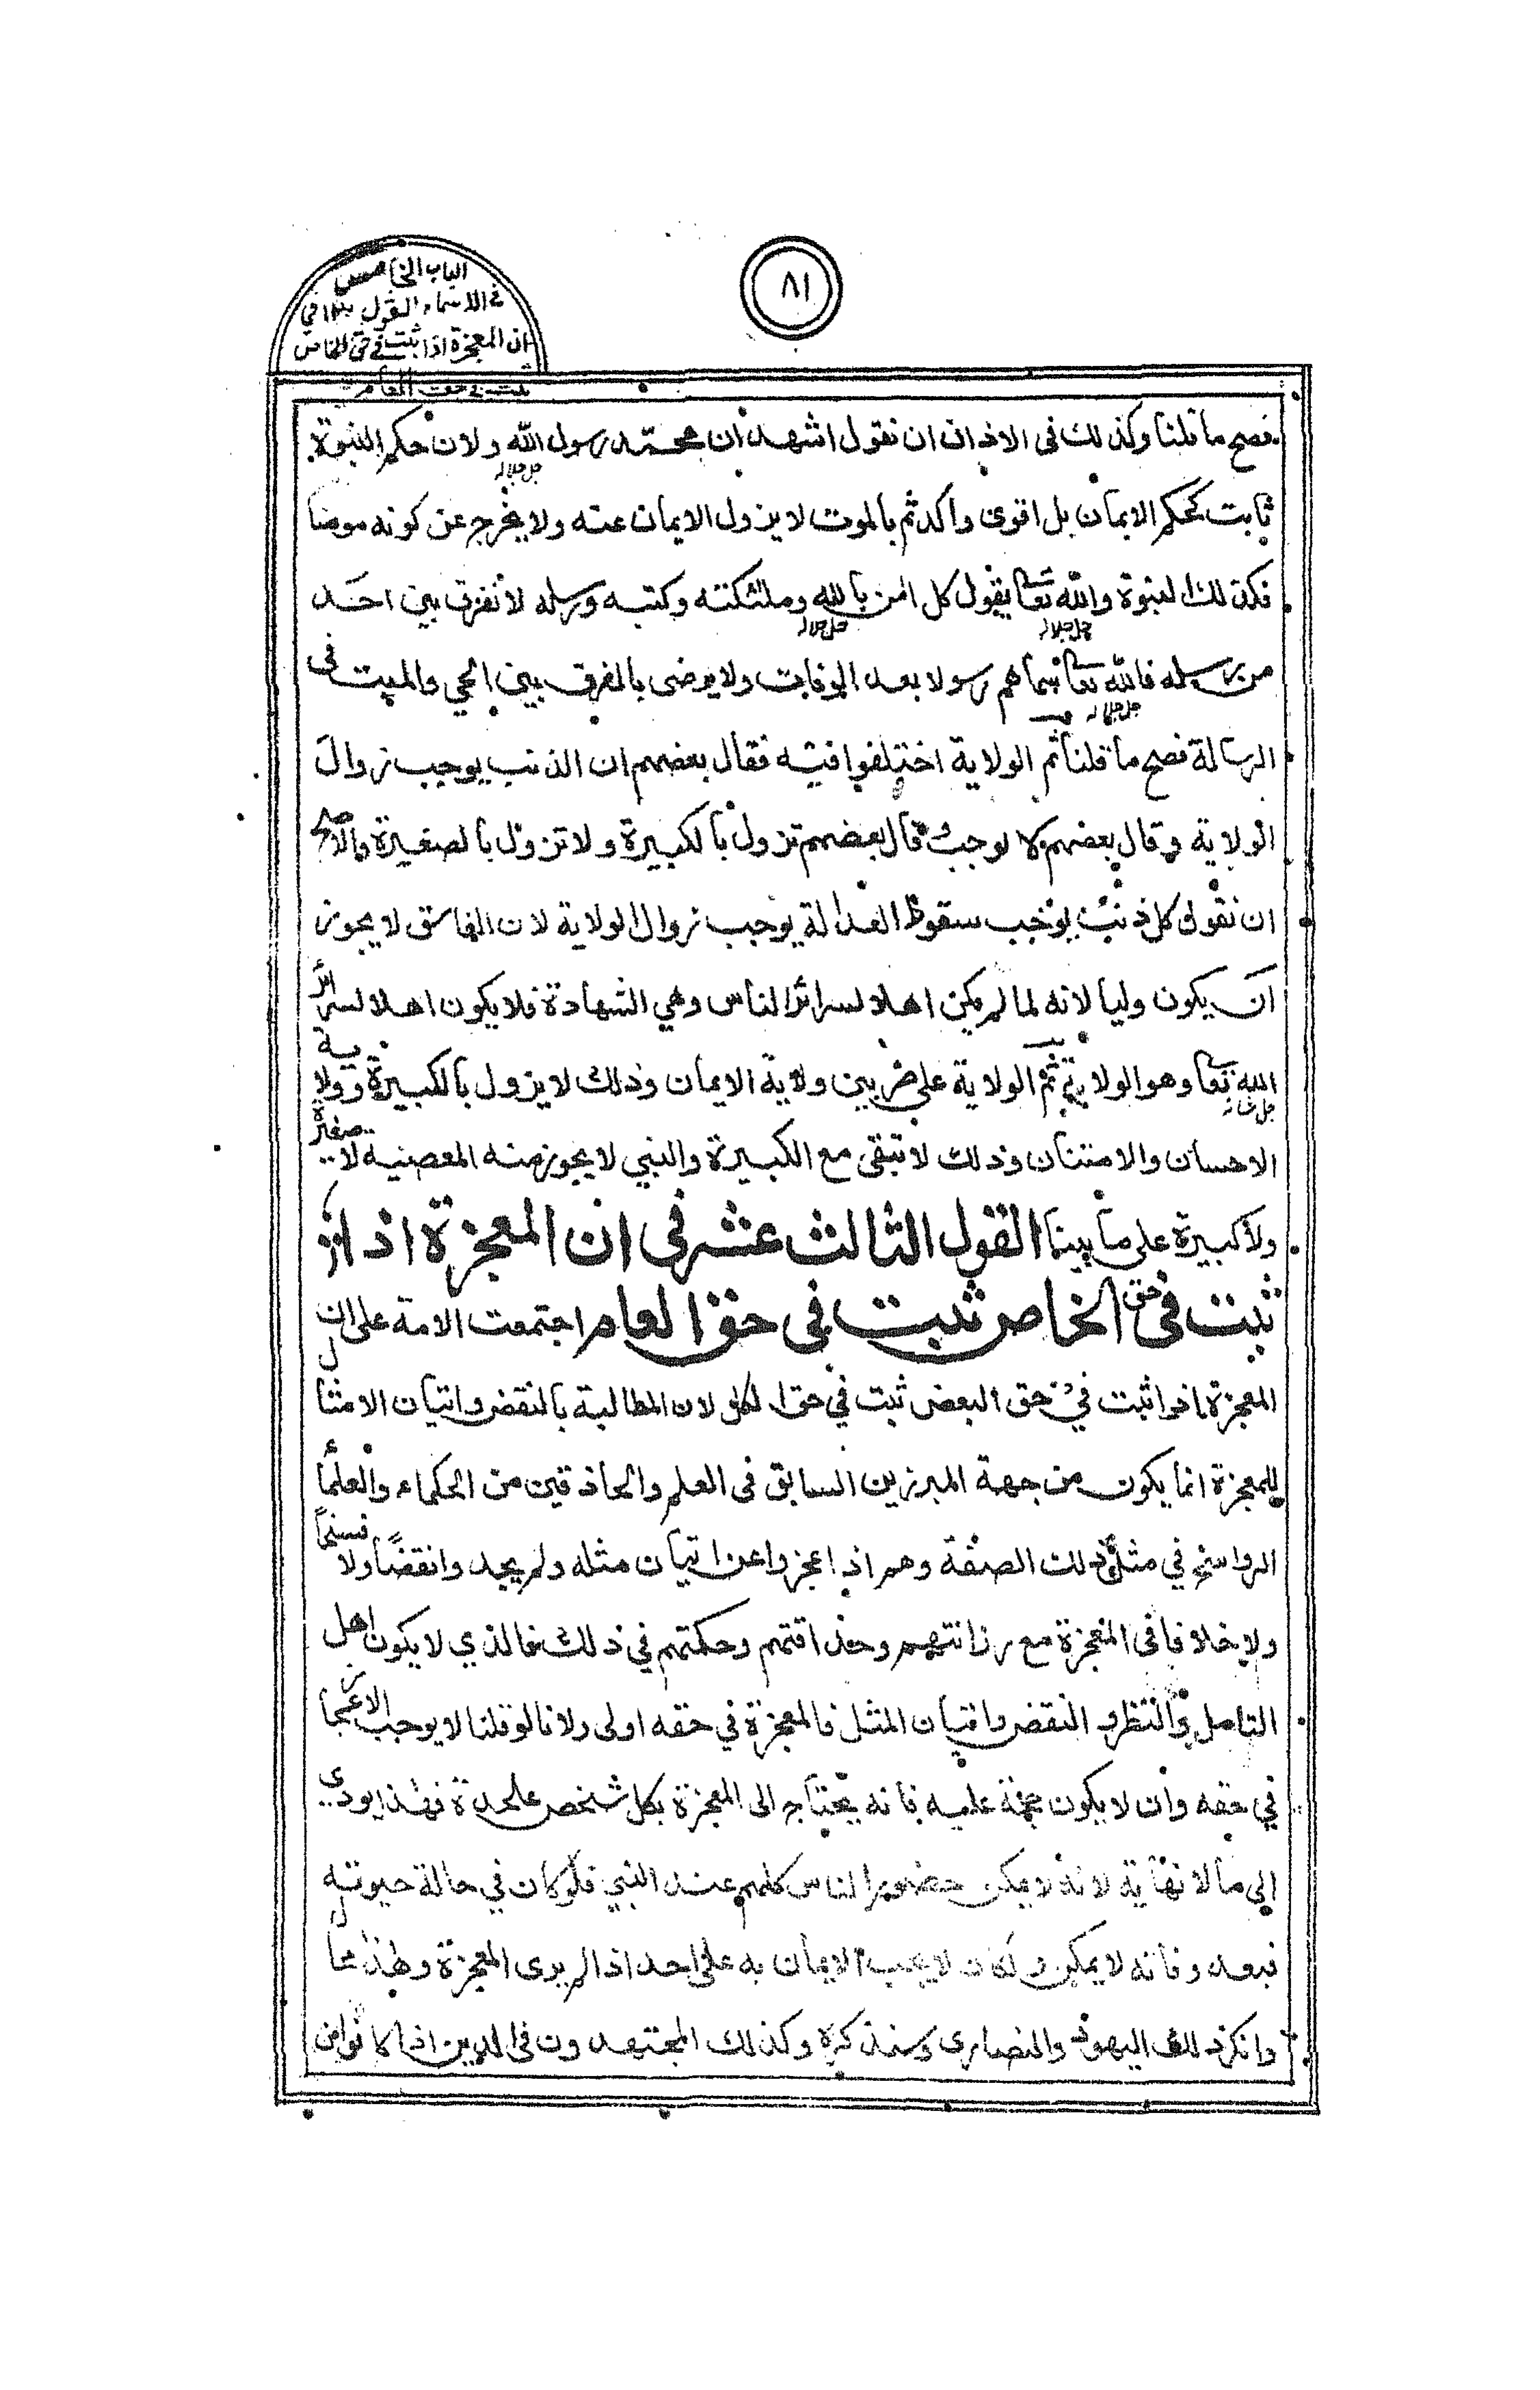 ٨١
الباب الخامس
في الاسماء القول ١٣ في
ان المعجزة اذا ثبت في حق الخاص
ثبت في حق العام
فصح ما قلنا وكذلك فى الاذان ان نقول اشهد ان محمّد رسول الله جل جلاله ولان حكم النبوة
ثابت كحكم الايمان بل اقوى واكد ثم بالموت لا يزول الايمان عنه ولا يخرج عن كونه مومنا
فكذلك النبوة والله تعا جل جلاله يقول كل امن بالله جل جلاله وملئكته وكتبه ورسله لا نفرق بين احد
من رسله فالله تعا جل جلاله سماهم رسولا بعد الوفات ولا يرضى بالفرق بين الحي والميت فى
الرسالة فصح ما قلنا ثم الولاية اختلفوا فيه فقال بعضهم ان الذنب يوجب زوال
الولاية وقال بعضهم لا يوجب وقال بعضهم تزول بالكبيرة ولا تزول بالصغيرة والاصح
ان نقول كل ذنب يوجب سقوط العدالة يوجب زوال الولاية لان الفاسق لا يجوز
ان يكون وليا لانه لما لم يكن اهلا لسرائر الناس وهي الشهادة فلا يكون اهلا لسرائر
الله تعا جل شانه وهو الولاية ثم الولاية على ضربين ولاية الايمان وذلك لا يزول بالكبيرة وولاية
الاحسان والامتنان وذلك لا تبقى مع الكبيرة والنبي لا يجوز منه المعصية لا صغيرة
ولا كبيرة على ما بينا القول الثالث عشر فى ان المعجزة اذا
ثبت فى حق الخاص ثبت في حق العام اجتمعت الامة على ان
المعجزة اذا ثبت في حق البعض ثبت في حق الكل لان المطالبة بالنقض واتيان الامثال
للمعجزة انما يكون من جهة المبرزين السابق فى العلم والحاذقين من الحكماء والعلماء
الرواسخ في مثل ذلك الصنفة وهم اذا عجزوا عن اتيان مثله ولم يجدوا نقضا ولا فسخا
ولا خلافا فى المعجزة مع رزانتهم وحذاقتهم وحكمتهم في ذلك فالذي لا يكون اهل
التامل والنظر و النقض واتيان المثل فالمعجزة في حقه اولى ولانا لو قلنا لا يوجب الاعجاز
في حقه وان لا يكون حجة عليه فانه يحتاج الى المعجزة بكل شخص علحدة فهذا يودي
الى ما لا نهاية لانه لا يمكن حضور الناس كلهم عند النبي فلو كان في حالة حيوته
فبعد وفاته لا يمكن ولكان لا يجب الايمان به على احد اذا لم يرى المعجزة وهذا محال
وانكر ذلك اليهود والنصارى وسنذكره وكذلك المجتهدون فى الدين اذا كانوا من